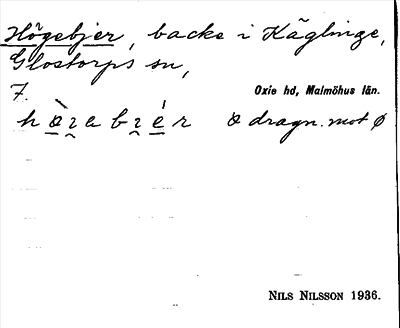 Högebjer, backe i Käglinge,
Glostorps sn,
7.
Oxie hd, Malmöhus län.
hö̀ɿabɿér æ dragn. mot ø
NILS NILSSON 1936.